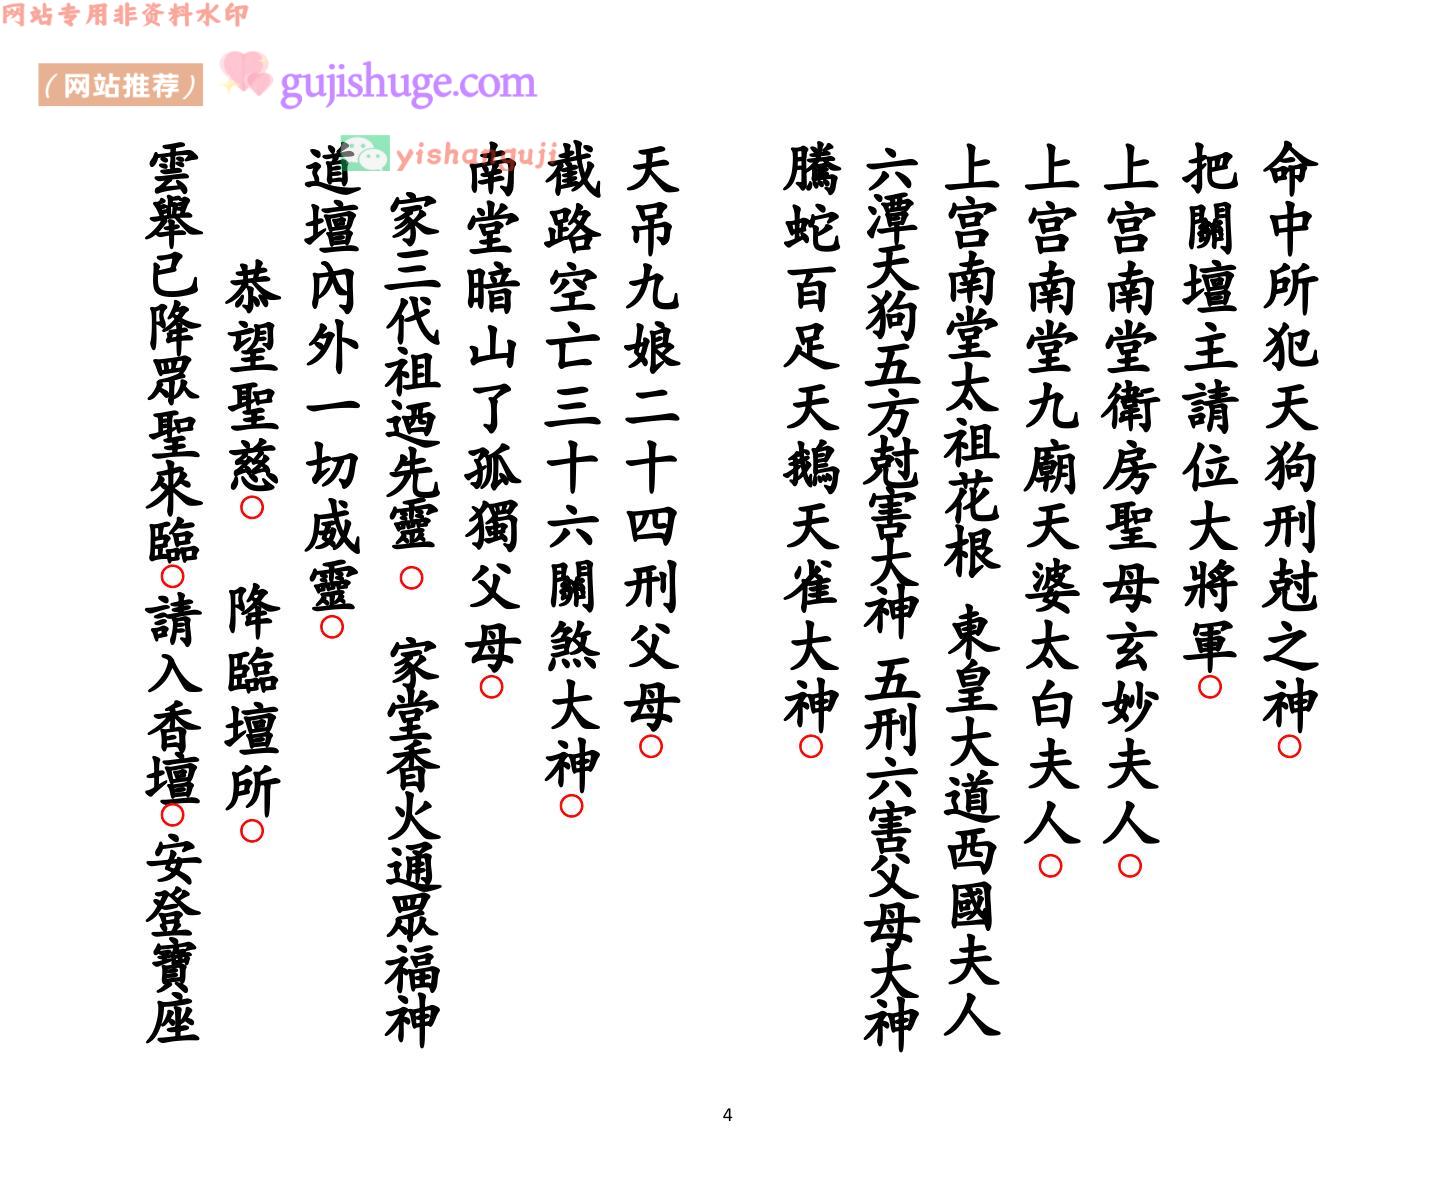 网站专用非资料水印
（网站推荐）
gujishuge.com
yishanguji
命中所犯天狗刑尅之神○
把關壇主請位大將軍○
上宮南堂衛房聖母玄妙夫人○
上宮南堂九廟天婆太白夫人○
上宮南堂太祖花根 東皇大道西國夫人
六潭天狗五方尅害大神 五刑六害父母大神
騰蛇百足天鵝天雀大神○
天吊九娘二十四刑父母○
截路空亡三十六關煞大神○
南堂暗山了孤獨父母○
家三代祖迺先靈○ 家堂香火通眾福神
道壇內外一切威靈○
恭望聖慈○ 降臨壇所○
雲舉已降眾聖來臨○請入香壇○安登寶座
4